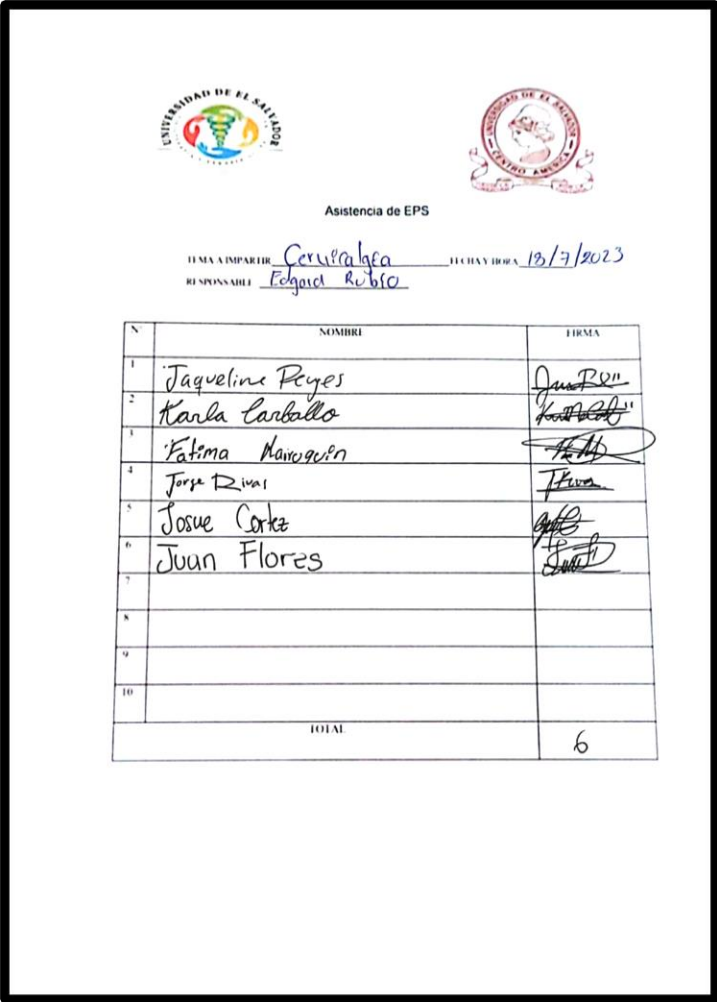 UNIVERSIDAD DE EL SALVADOR
UNIVERSIDAD DE EL SALVADOR
CENTRO AMERICA
Asistencia de EPS
TEMA A IMPARTIR Cervicalgia FECHA Y HORA 18/7/2023
RESPONSABLE Edgard Rubio
N° NOMBRE FIRMA
1 Jaqueline Reyes
2 Karla Carballo
3 Fatima Marroquin
4 Jorge Rivas
5 Josue Cortez
6 Juan Flores
7
8
9
10
TOTAL 6